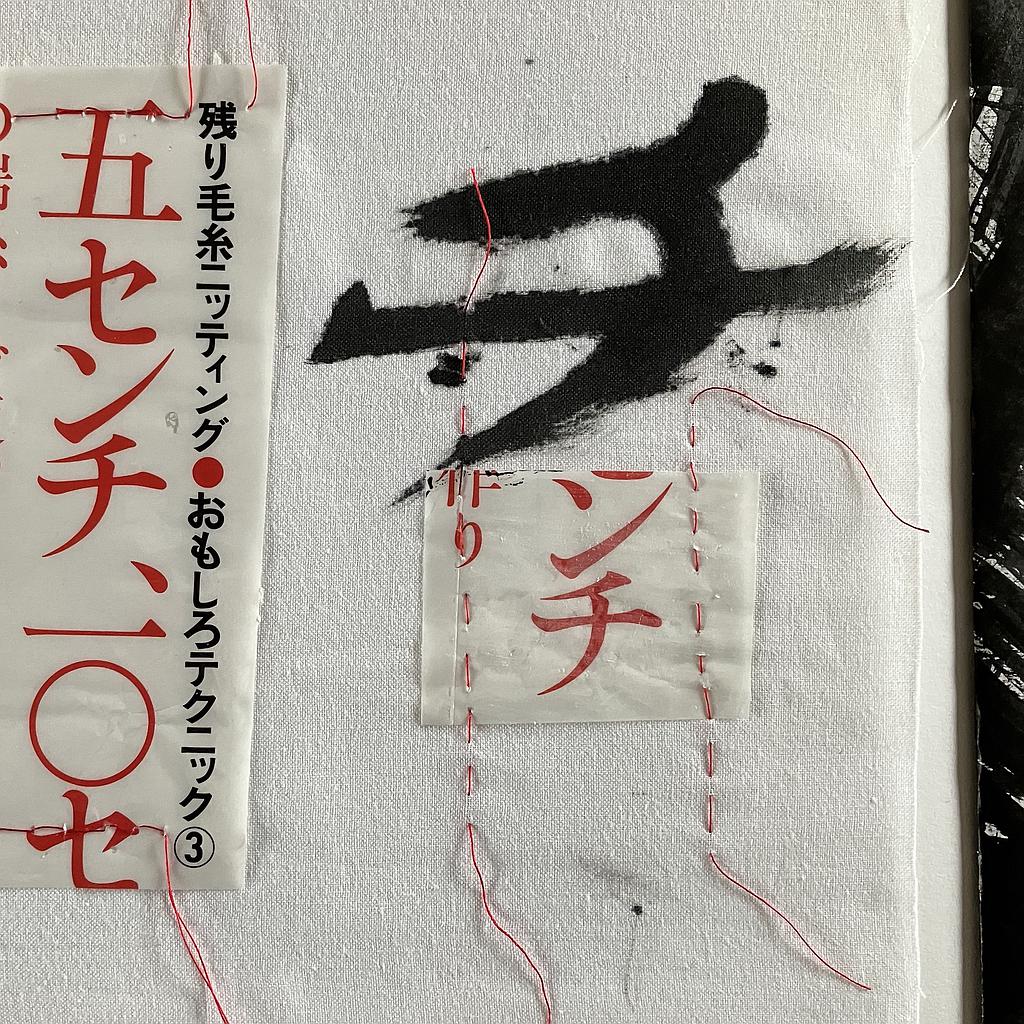 残り毛糸ニッティング●おもしろテクニック③
五センチ、一〇セ
チ
ンチ
作り